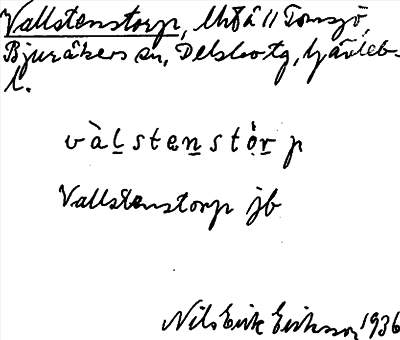 Vallstenstorp, Tomsjö,
Bjuråkers sn, Delsbo tg, Gävleb.
l.
vàlstenstòrp
Vallstenstorp jb
Nils Erik Eriksson 1936